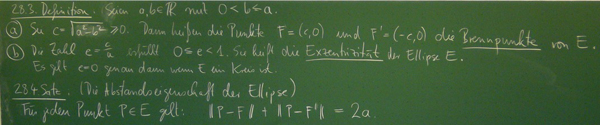 28.3. Definition. Seien a,b∈ℝ mit 0<b≤a.
(a) Sei c=√(a²-b²) ≥0. Dann heißen die Punkte F=(c,0) und F'=(-c,0) die Brennpunkte von E.
(b) Die Zahl e=c/a erfüllt 0≤e<1. Sie heißt die Exzentrizität der Ellipse E.
Es gilt e=0 genau dann wenn E ein Kreis ist.
28.4 Satz. (Die Abstandseigenschaft der Ellipse)
Für jeden Punkt P∈E gilt: ‖P-F‖ + ‖P-F'‖ = 2a.